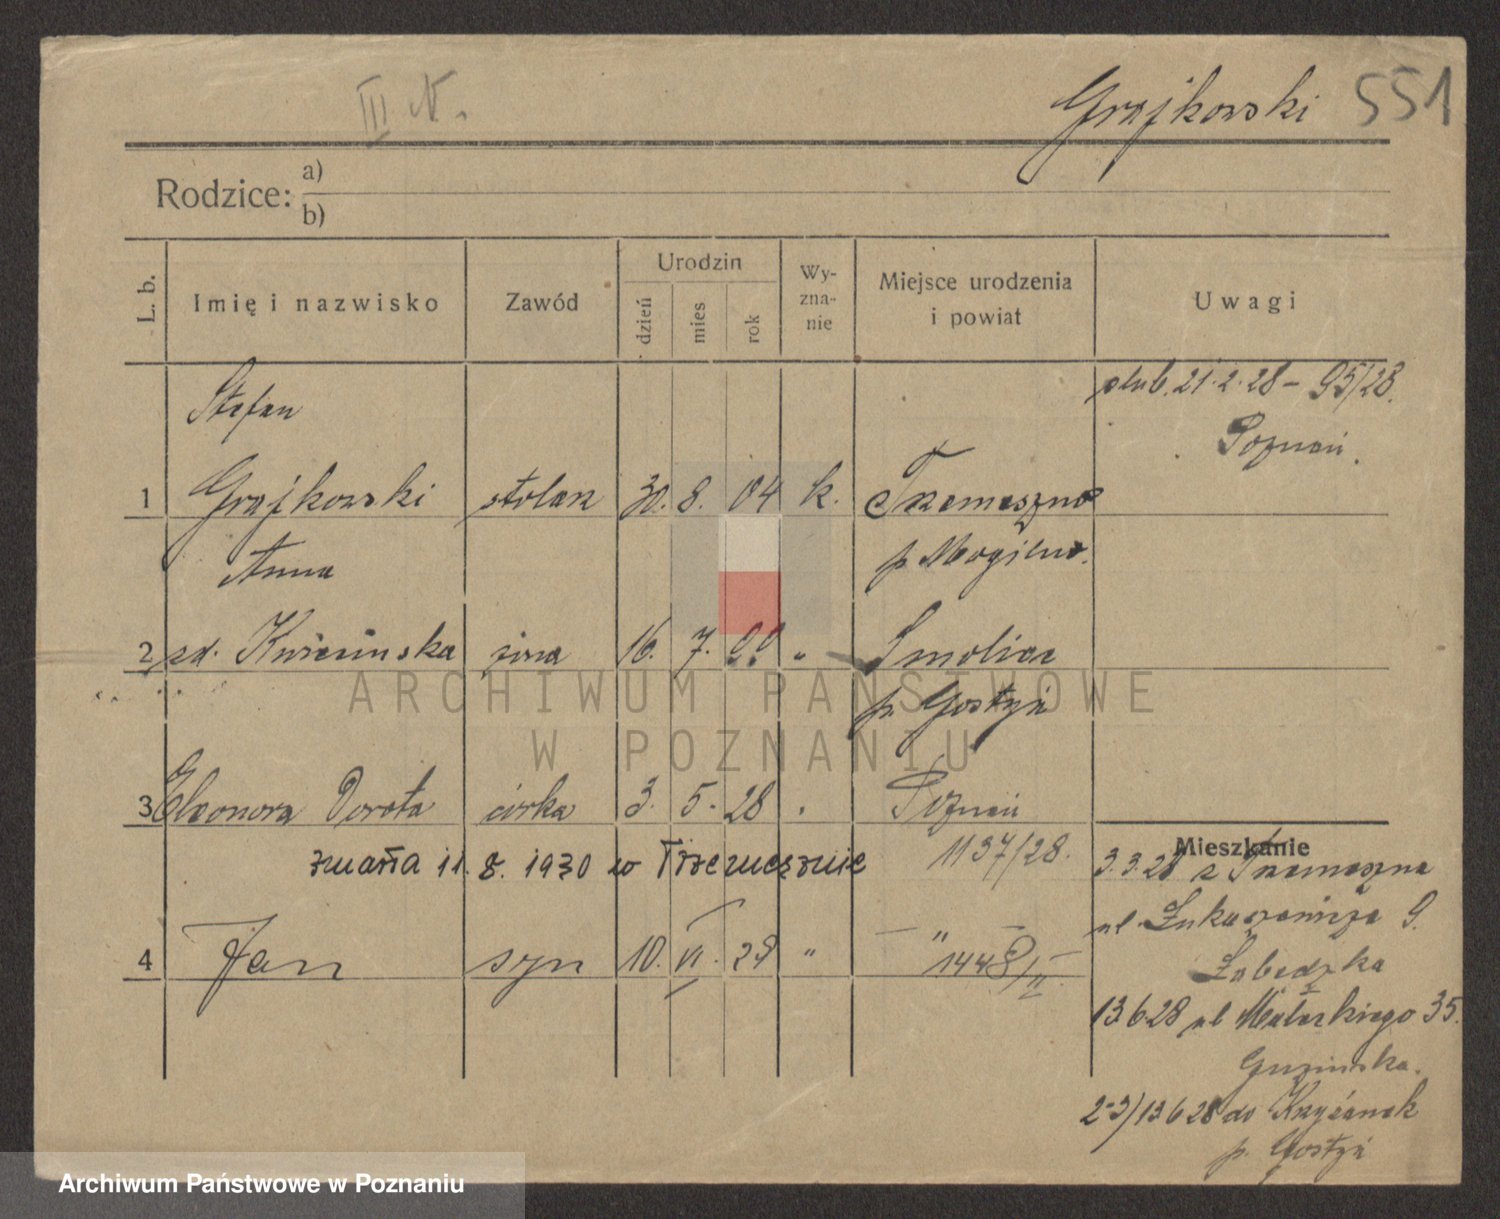 III N.
Grajkowski 551
Rodzice: a)
b)
L. b.
Imię i nazwisko
Zawód
Urodzin
dzień
mies
rok
Wy-
zna-
nie
Miejsce urodzenia
i powiat
Uwagi
ślub. 21.2.28 – 95/28.
Poznań.
Stefan
1 Grajkowski stolarz 30. 8. 04 k. Trzemeszno
p. Mogilno.
Anna
2 zd. żona 16. 7. 00 „ Smolice
p. Gostyń
3 Eleonora Dorota córka 3. 5. 28 „ Poznań
1137/28.
zmarła 11. 8. 1930 w
4 Jan syn 10. VI. 29 „ „
1448/II
Mieszkanie
3.3.28 z Trzemeszna
ul. Łukaszewicza 9.
Łabędzka
13.6.28 ul 35.
2-3) 13 6 28 do Krzyżanek
p. Gostyń
ARCHIWUM PAŃSTWOWE
W POZNANIU
Archiwum Państwowe w Poznaniu